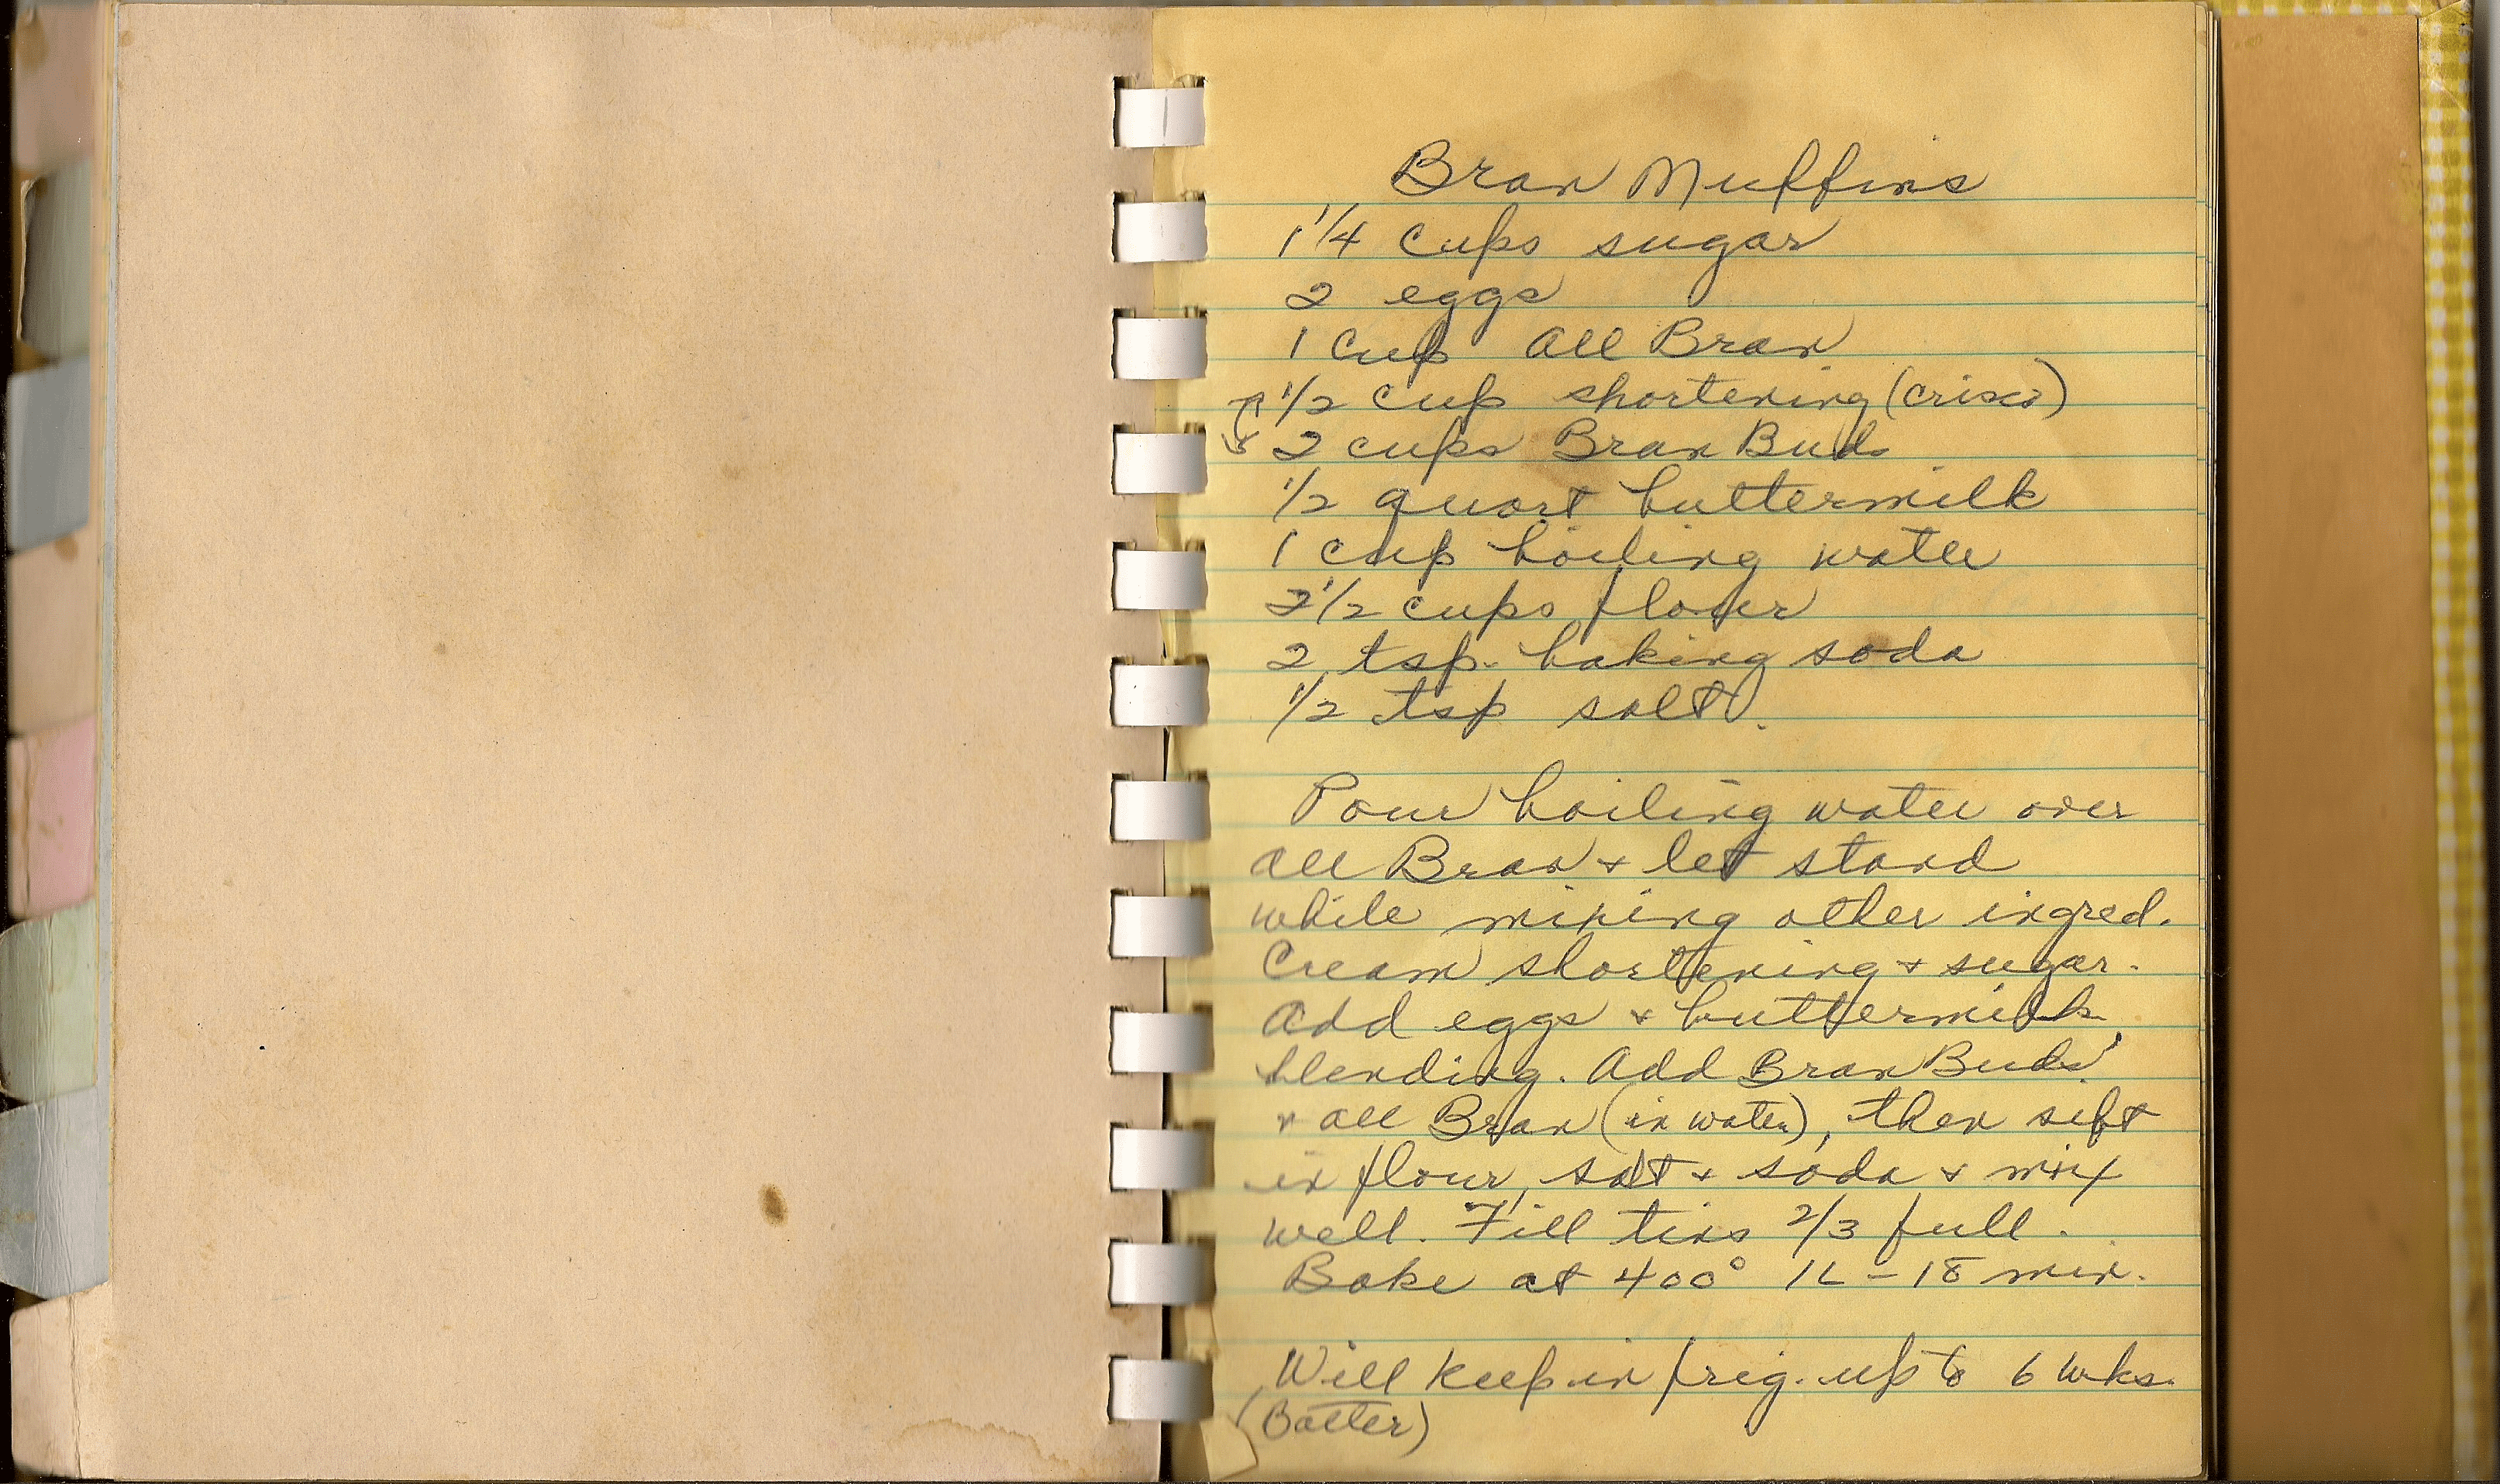 Bran Muffins
1 1/4 cups sugar
2 eggs
1 cup all Bran
1/2 cup shortening (crisco)
2 cups Bran Buds
1/2 quart buttermilk
1 cup boiling water
2 1/2 cups flour
2 tsp. baking soda
1/2 tsp salt.
Pour boiling water over
all Bran + let stand
while mixing other ingred.
Cream shortening + sugar.
Add eggs + buttermilk,
blending. Add Bran Buds
+ all Bran (in water), then sift
in flour, salt + soda + mix
well. Fill tins 2/3 full.
Bake at 400° 16-18 min.
Will keep in frig. up to 6 wks.
(Batter)